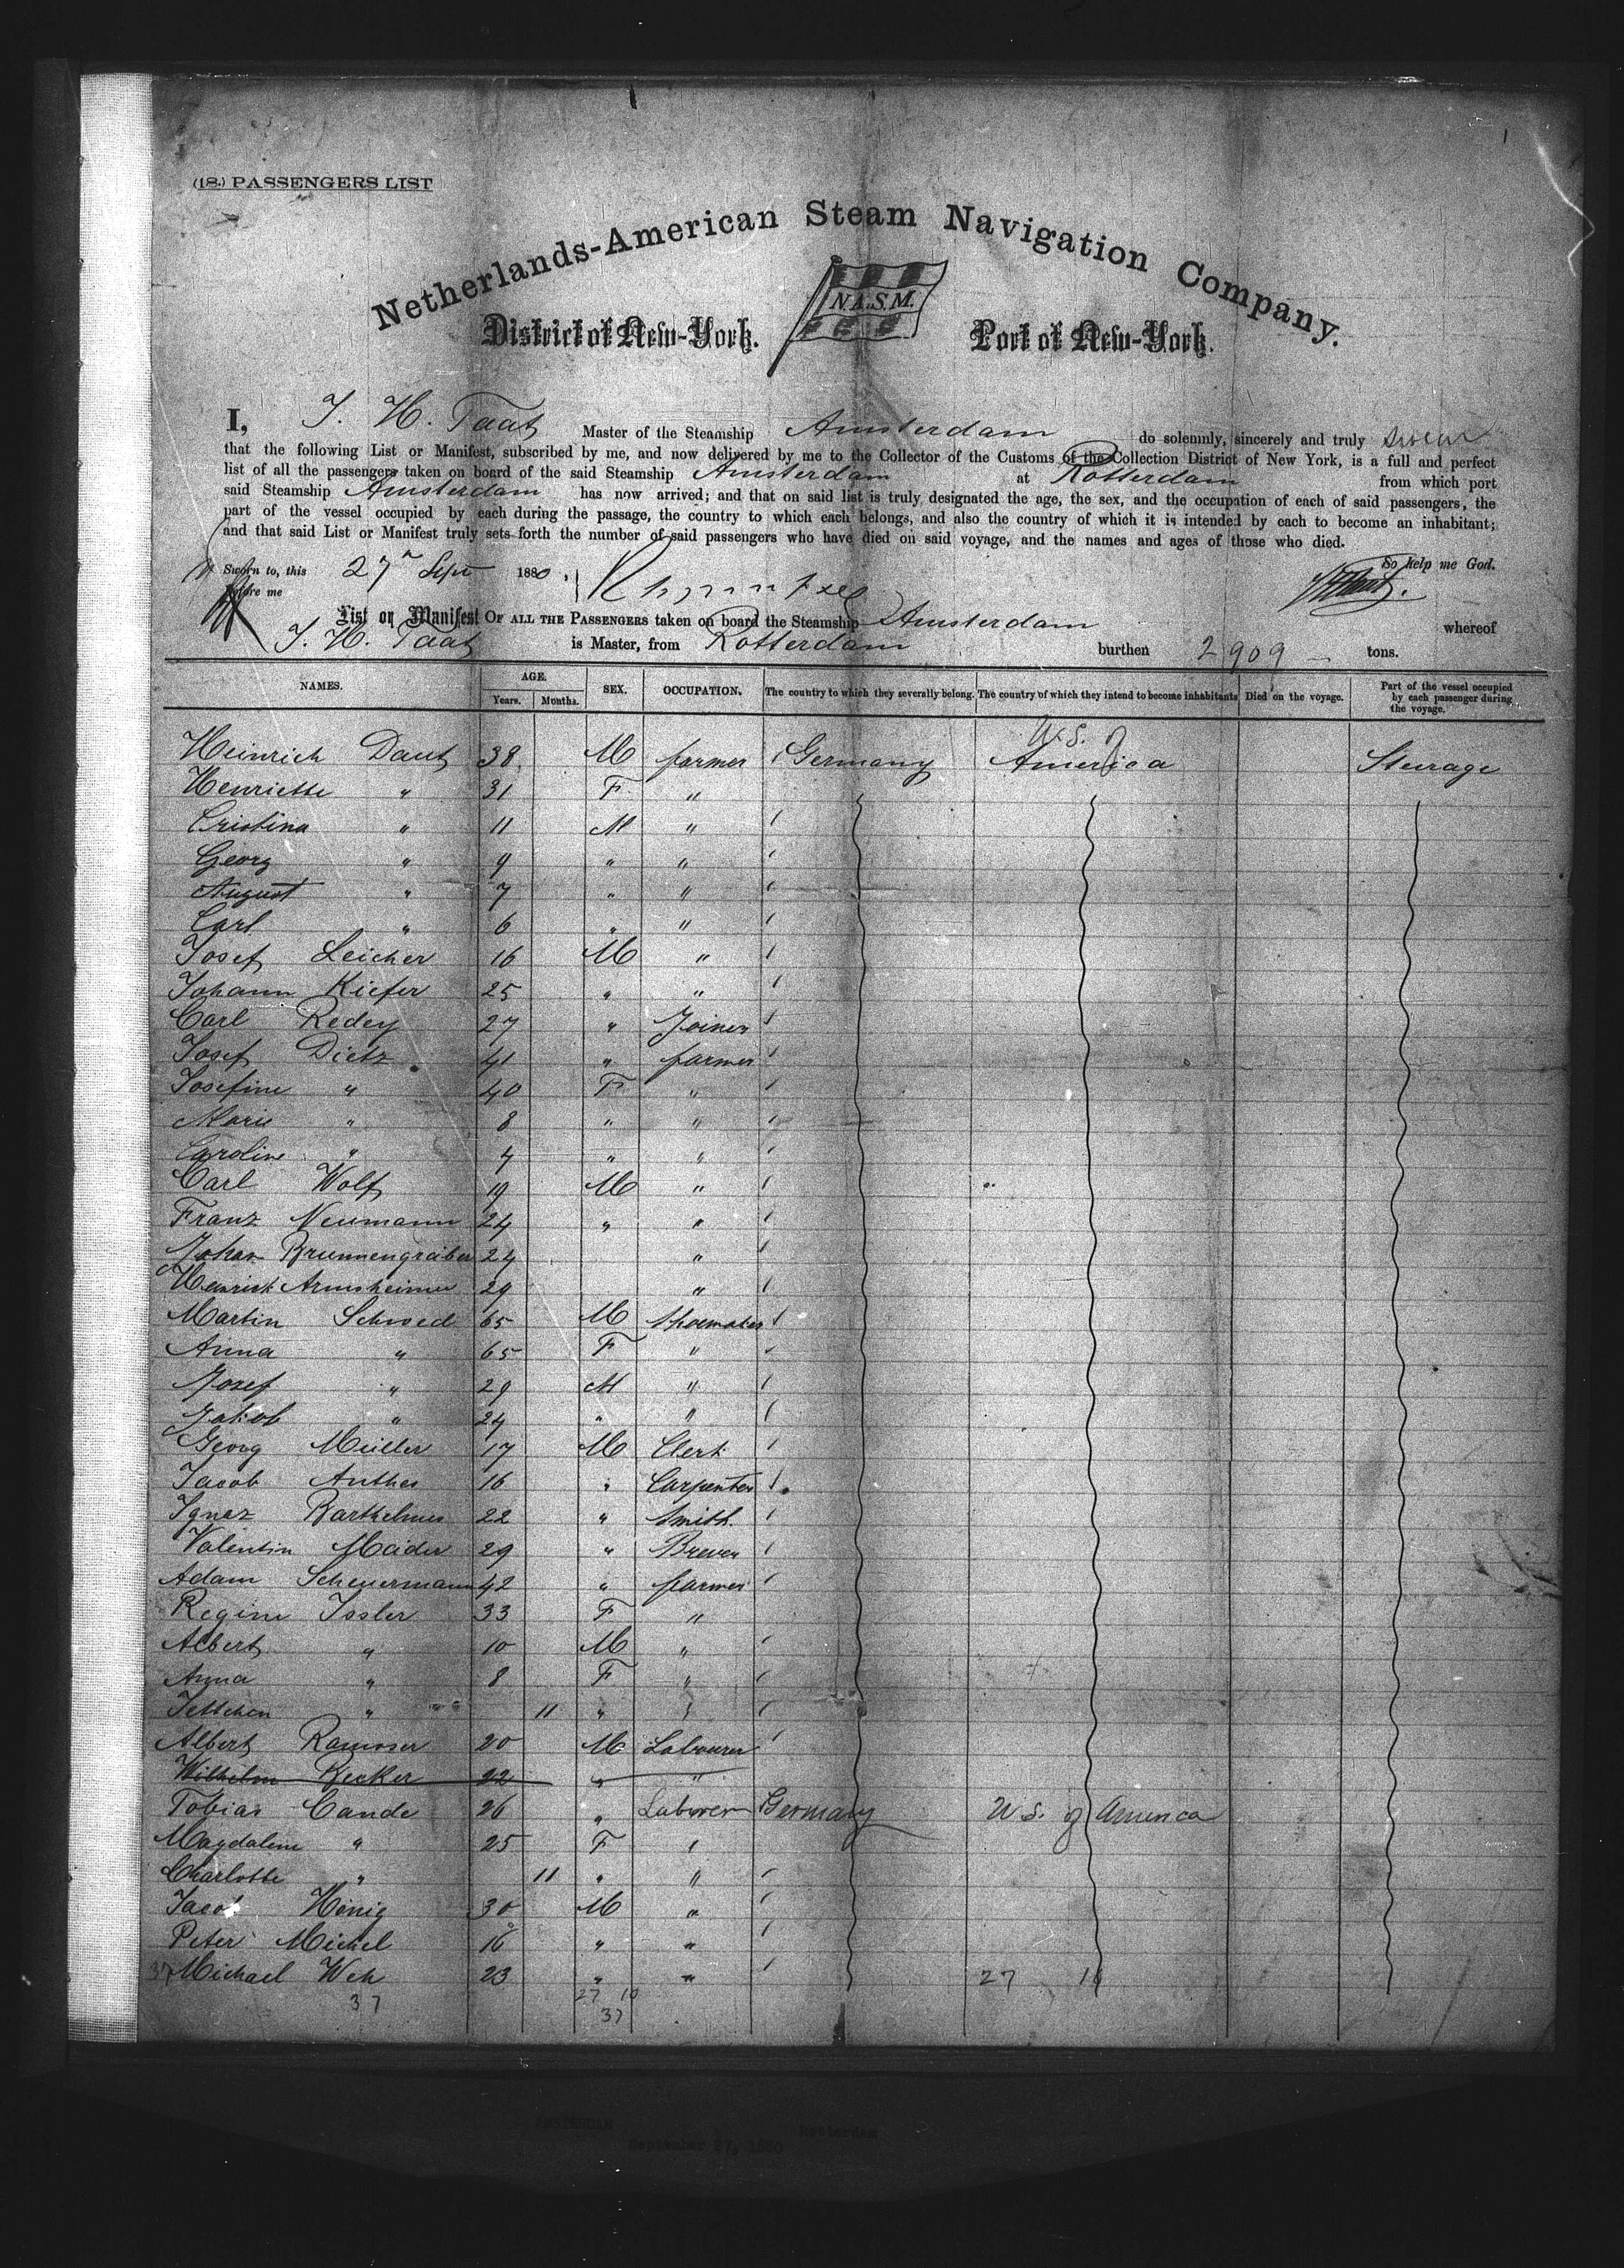 (18.) PASSENGERS LIST
Netherlands-American Steam Navigation Company.
N.A.S.M.
District of New-York. Port of New-York.
I, J. H. Taat Master of the Steamship Amsterdam do solemnly, sincerely and truly swear
that the following List or Manifest, subscribed by me, and now delivered by me to the Collector of the Customs of the Collection District of New York, is a full and perfect
list of all the passengers taken on board of the said Steamship Amsterdam at Rotterdam from which port
said Steamship Amsterdam has now arrived; and that on said list is truly designated the age, the sex, and the occupation of each of said passengers, the
part of the vessel occupied by each during the passage, the country to which each belongs, and also the country of which it is intended by each to become an inhabitant;
and that said List or Manifest truly sets forth the number of said passengers who have died on said voyage, and the names and ages of those who died.
So help me God.
Sworn to, this 27 Sept 1880.
before me
List or Manifest OF ALL THE PASSENGERS taken on board the Steamship Amsterdam whereof
J. H. Taat is Master, from Rotterdam burthen 2909 tons.
NAMES. AGE. Years. Months. SEX. OCCUPATION. The country to which they severally belong. The country of which they intend to become inhabitants Died on the voyage. Part of the vessel occupied by each passenger during the voyage.
Heinrich Daut 38 M farmer Germany U.S. of America Steerage
Henriette " 31 F "
Cristina " 11 M "
Georg " 9 " "
August " 7 " "
Carl " 6 " "
Josef Leicher 16 M "
Johann Kiefer 25 " "
Carl Redey 27 " Joiner
Josef Dietz 41 " farmer
Josefine " 40 F "
Marie " 8 " "
Caroline " 4 " "
Carl Wolf 19 M "
Franz Neumann 24 " "
Johan Brunnengräber 24 "
Heinrich Arnsheimer 29 "
Martin Schwed 65 M Shoemaker
Anna " 65 F "
Josef " 29 M "
Jakob " 24 " "
Georg Müller 17 M Clerk
Jacob Anthes 16 " Carpenter
Ignaz Barthelmes 22 " Smith.
Valentin Mäder 29 " Brewer
Adam Scheuermann 42 " farmer
Regine Issler 33 F "
Albert " 10 M "
Anna " 8 F "
Jettchen " 11 "
Albert Ramoser 20 M Labourer
Wilhelm Becker 22 " "
Tobias Cande 26 " Laborer Germany U.S. of America
Magdalene " 25 F "
Charlotte " 11 " "
Jacob König 30 M "
Peter Michel 16 " "
37 Michael Weh 23 " " 27 10
37 27 10
37
AMSTERDAM Rotterdam
September 27, 1880